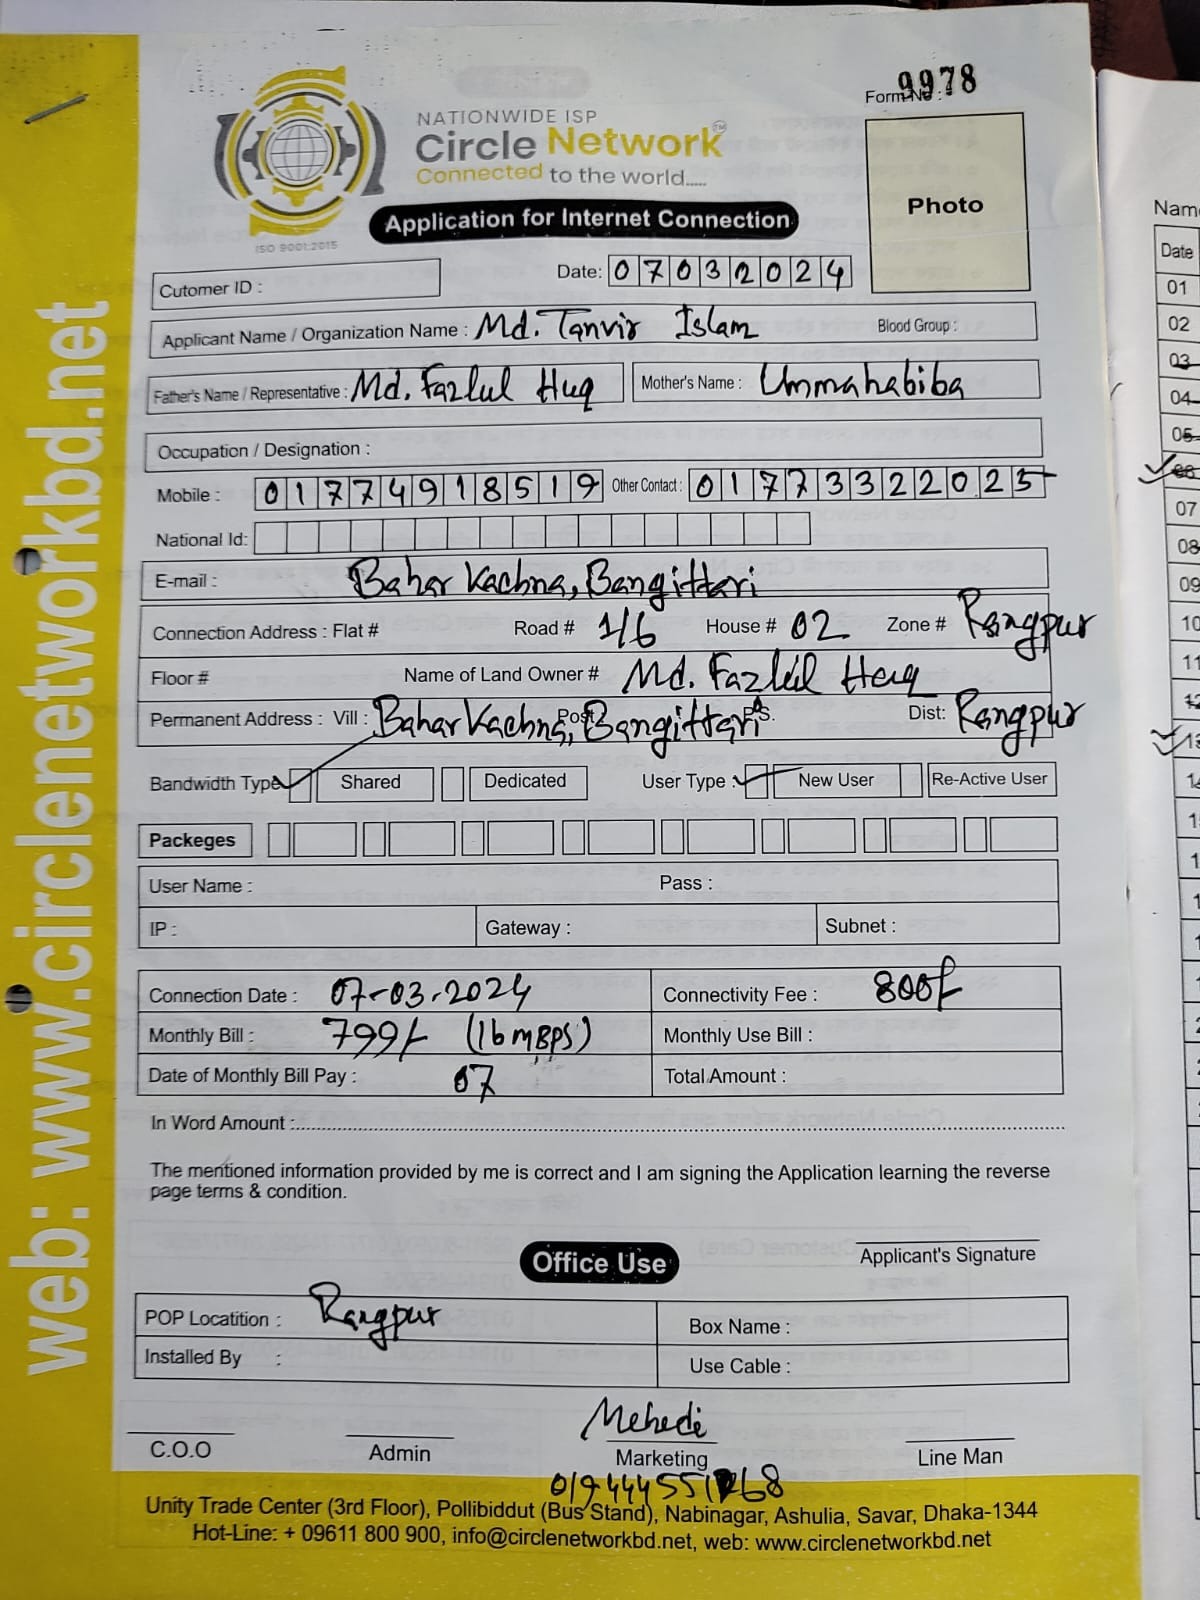 web: www.circlenetworkbd.net
NATIONWIDE ISP
Circle Network™
Connected to the world.....
ISO 9001:2015
Application for Internet Connection
Form No : 9978
Photo
Cutomer ID :
Date: 07032024
Applicant Name / Organization Name : Md. Tanvir Islam Blood Group :
Father's Name / Representative : Md. Fazlul Huq Mother's Name : Ummahabiba
Occupation / Designation :
Mobile : 01774918519 Other Contact : 01773322025
National Id:
E-mail : Bahar Kachna, Bangittari
Connection Address : Flat # Road # 1/6 House # 02 Zone # Rangpur
Floor # Name of Land Owner # Md. Fazlul Huq
Permanent Address : Vill : Bahar Kachna, Post Bangittari P.S. Dist: Rangpur
Bandwidth Type Shared Dedicated User Type : New User Re-Active User
Packeges
User Name : Pass :
IP : Gateway : Subnet :
Connection Date : 07-03-2024 Connectivity Fee : 800/-
Monthly Bill : 799/- (16 MBPS) Monthly Use Bill :
Date of Monthly Bill Pay : 07 Total Amount :
In Word Amount :
The mentioned information provided by me is correct and I am signing the Application learning the reverse
page terms & condition.
Applicant's Signature
Office Use
POP Locatition : Rangpur Box Name :
Installed By : Use Cable :
Mehedi
C.O.O Admin Marketing Line Man
Unity Trade Center (3rd Floor), Pollibiddut (Bus Stand), Nabinagar, Ashulia, Savar, Dhaka-1344
Hot-Line: + 09611 800 900, info@circlenetworkbd.net, web: www.circlenetworkbd.net
Date
01
02
03
04
05
07
08
09
10
11